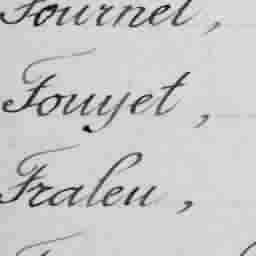 Fournel,
Fouyet,
Fraleu,